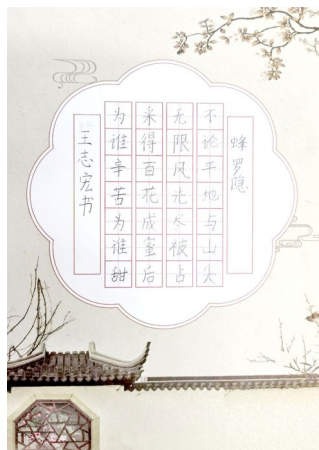 蜂 罗隐
不论平地与山尖
无限风光尽被占
采得百花成蜜后
为谁辛苦为谁甜
王志宏书